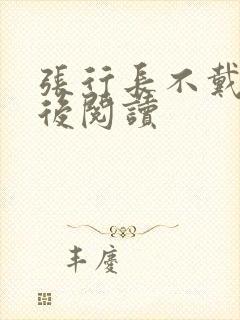 張行長不戴
後閱讀
丰慶